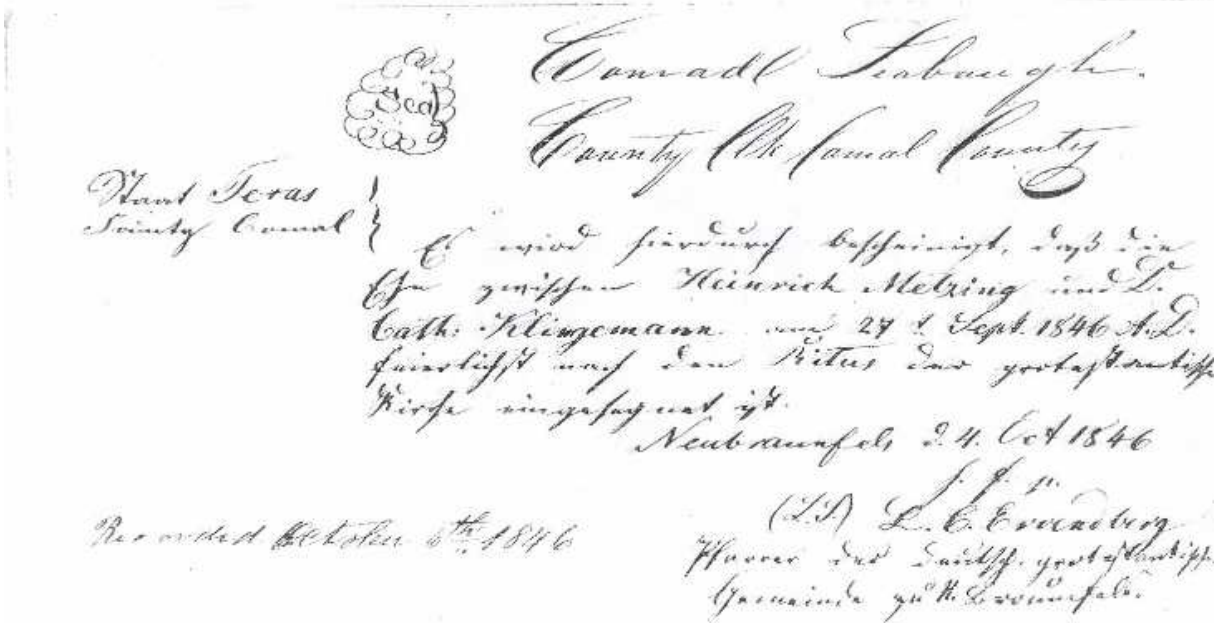 Conradl Seabaugh.
Seal
County Clk Comal County
Staat Texas
County Comal
Es wird hierdurch bescheinigt, daß die
Ehe zwischen Heinrich Metzing und D.
Cath: Klingemann am 27 t. Sept. 1846 A.D.
feierlichst nach dem Ritus der protestantische
Kirche eingesegnet ist.
Neubraunfels d. 4. Oct 1846
(L.S.) L. C. Ervendberg
Recorded October 6th 1846
Pfarrer der deutsch. protestantische
Gemeinde zu N. Braunfels.